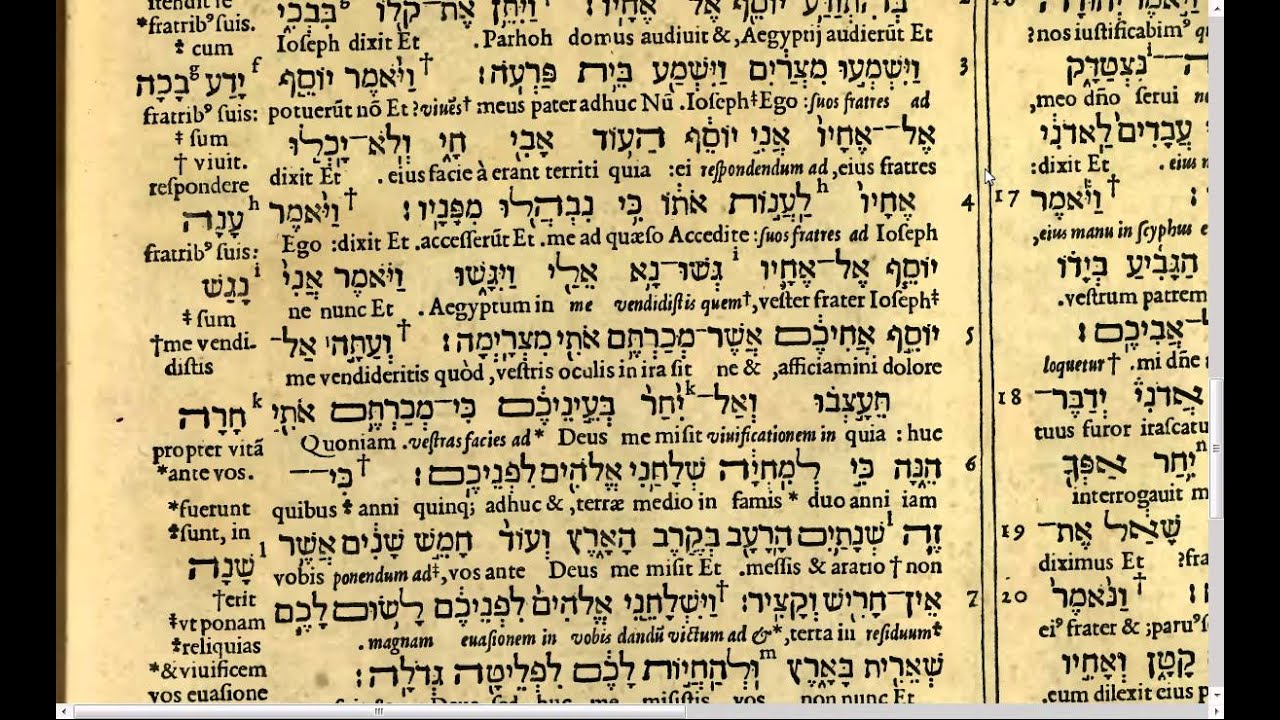 וַיֹּאמֶר יְהוּדָה 16
?nos iustificabimꝰ
נִצְטַדָּק
,meo dño serui
עֲבָדִים לַאדֹנִי
:dixit Et .eius
וַיֹּאמֶר† 17
,eius manu in scyphus
הַגָּבִיעַ בְּיָדוֹ
.vestrum patrem
אֲבִיכֶם׃
loquetur† .mi dñe
אֲדֹנִי יְדַבֶּר־ 18
tuus furor irascatu
יִחַר אַפְּךָ
interrogauit
שָׁאַל אֶת־ 19
diximus Et
וַנֹּאמֶר† 20
eiꝰ frater & ;paruꝰ
קָטָן וְאָחִיו
,eum dilexit eius
בְּהִתְוַדַּע יוֹסֵף אֶל אֶחָיו׃ וַיִּתֵּן אֶת־קֹלוֹ בִּבְכִי
Ioseph dixit Et .Parhoh domus audiuit &, Aegyptij audierũt Et
3 וַיִּשְׁמְעוּ מִצְרַיִם וַיִּשְׁמַע בֵּית פַּרְעֹה׃ †וַיֹּאמֶר יוֹסֵף
potuerũt nõ Et ?viuẽs† meus pater adhuc Nũ .Ioseph‡ Ego :suos fratres ad
אֶל־אֶחָיו אֲנִי יוֹסֵף הַעוֹד אָבִי חָי וְלֹא־יָכְלוּ
dixit Et .eius facie à erant territi quia :ei respondendum ad, eius fratres
4 אֶחָיו לַעֲנוֹת אֹתוֹ כִּי נִבְהֲלוּ מִפָּנָיו׃ †וַיֹּאמֶר
Ego :dixit Et .accesserũt Et .me ad quæso Accedite :suos fratres ad Ioseph
יוֹסֵף אֶל־אֶחָיו גְּשׁוּ־נָא אֵלַי וַיִּגָּשׁוּ וַיֹּאמֶר אֲנִי
ne nunc Et .Aegyptum in me vendidistis quem†, vester frater Ioseph‡
5 יוֹסֵף אֲחִיכֶם אֲשֶׁר־מְכַרְתֶּם אֹתִי מִצְרָיְמָה׃ †וְעַתָּה אַל־
me vendideritis quòd, vestris oculis in ira sit ne &, afficiamini dolore
תֵּעָצְבוּ וְאַל־יִחַר בְּעֵינֵיכֶם כִּי־מְכַרְתֶּם אֹתִי
Quoniam .vestras facies ad* Deus me misit viuificationem in quia :huc
6 הֵנָּה כִּי לְמִחְיָה שְׁלָחַנִי אֱלֹהִים לִפְנֵיכֶם׃ †כִּי־
quibus‡ anni quinq; adhuc &, terræ medio in famis* duo anni iam
זֶה שְׁנָתַיִם הָרָעָב בְּקֶרֶב הָאָרֶץ וְעוֹד חָמֵשׁ שָׁנִים אֲשֶׁר
vobis ponendum ad‡, vos ante Deus me misit Et .messis & aratio† non
7 אֵין־חָרִישׁ וְקָצִיר׃ †וַיִּשְׁלָחֵנִי אֱלֹהִים לִפְנֵיכֶם לָשׂוּם לָכֶם
.magnam euasionem in vobis dandũ victum ad &*, terra in residuum*
שְׁאֵרִית בָּאָרֶץ וּלְהַחֲיוֹת לָכֶם לִפְלֵיטָה גְּדֹלָה׃
misistis vos non nunc Et
*fratribꝰ suis.
‡ cum
f יָדַע g בָּכָה
fratribꝰ suis:
‡ sum
† viuit.
respondere
h עָנָה
fratribꝰ suis:
i נָגַשׁ
‡ sum
†me vendi-
distis
k חָרָה
propter vitã
*ante vos.
*fuerunt
‡sunt, in
l שָׁנָה
†erit
‡vt ponam
*reliquias
*& viuificem
vos euasione